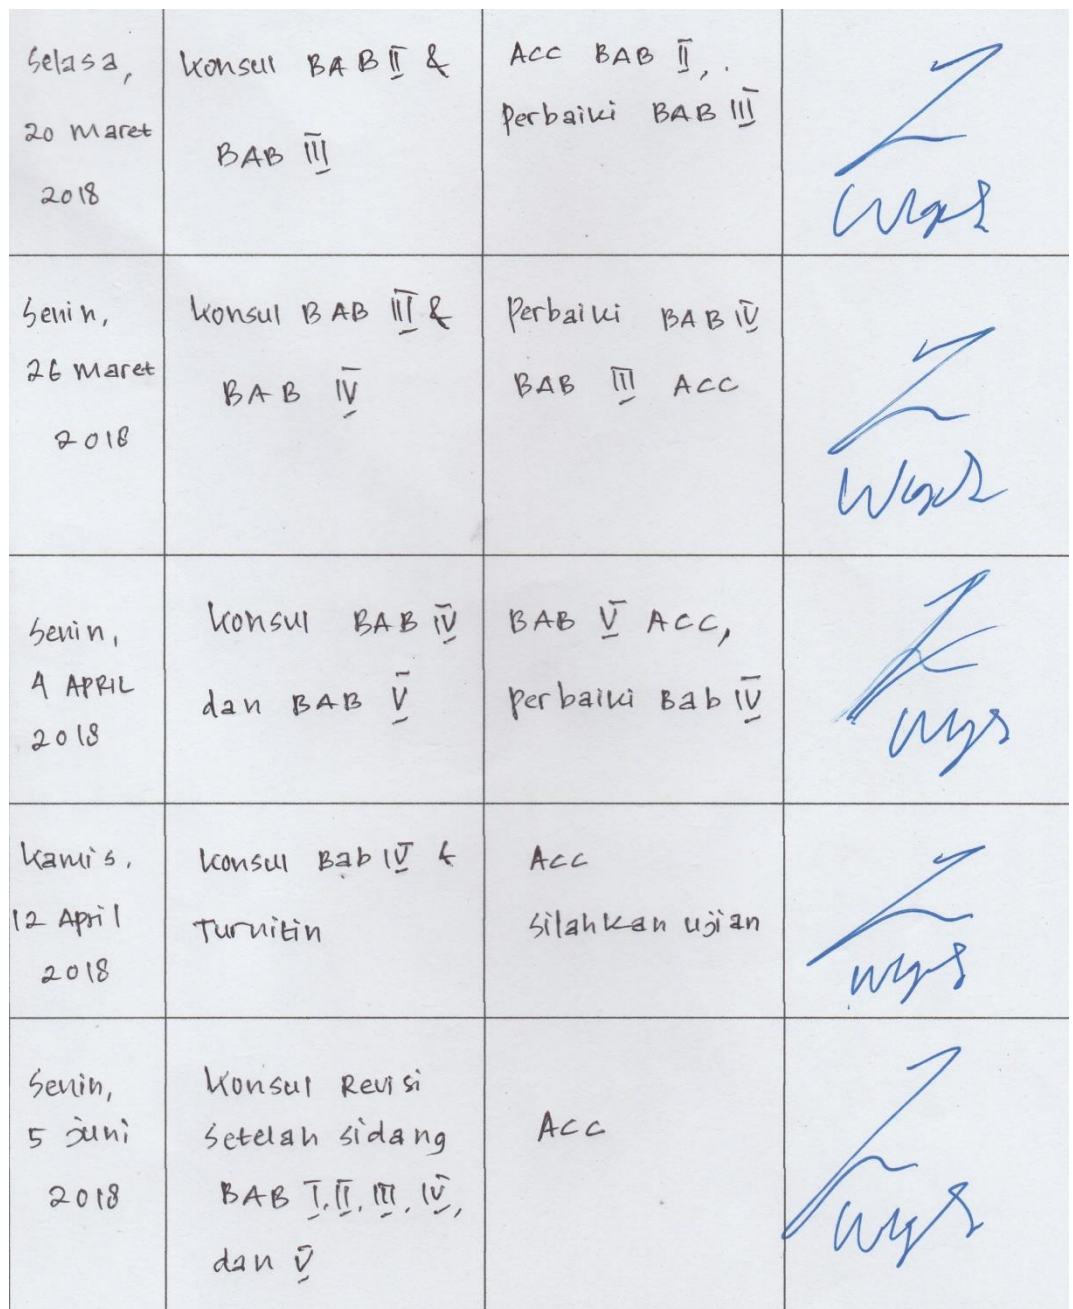 Selasa,
20 Maret
2018
Konsul BAB II &
BAB III
Acc BAB II,
Perbaiki BAB III
Senin,
26 Maret
2018
Konsul BAB III &
BAB IV
Perbaiki BAB IV
BAB III ACC
Senin,
4 APRIL
2018
Konsul BAB IV
dan BAB V
BAB V ACC,
Perbaiki Bab IV
Kamis,
12 April
2018
Konsul Bab IV &
Turnitin
Acc
Silahkan ujian
Senin,
5 Juni
2018
Konsul Revisi
Setelah sidang
BAB I, II, III, IV,
dan V
Acc